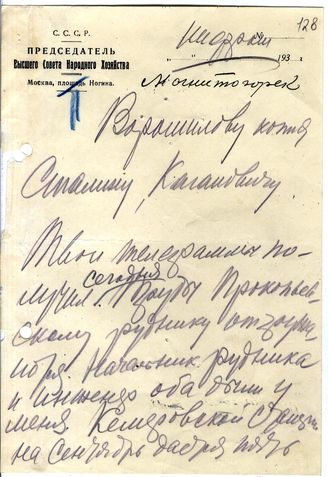 128
С. С. С. Р.
ПРЕДСЕДАТЕЛЬ
Высшего Совета Народного Хозяйства
Москва, площадь Ногина.
шифром
"      "      193
Магнитогорск
Ворошилову копия
Сталину, Кагановичу.
Твои телеграммы по-
сегодня
лучил. Трубы Прокопьев-
скому руднику
Начальник рудника
и инженер оба были у
меня. Кемеровской
на сентябрь дается пять